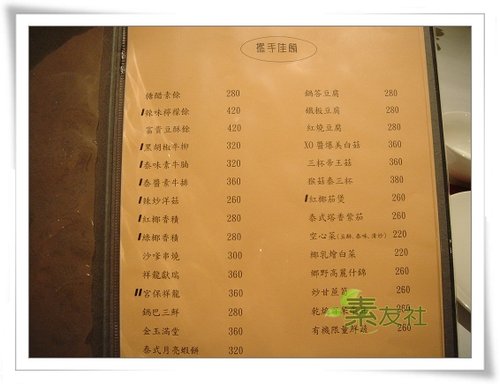 攜手佳餚
糖醋素餘 280
辣味檸檬餘 420
富貴豆酥餘 420
黑胡椒牛柳 320
泰味素牛腩 360
泰醬素牛排 360
辣炒洋菇 260
紅椰香積 280
綠椰香積 280
沙嗲串燒 300
祥龍獻瑞 360
宮保祥龍 360
鍋巴三鮮 280
金玉滿堂 360
泰式月亮蝦餅 320
鍋答豆腐 280
鐵板豆腐 280
紅燒豆腐 280
XO醬爆美白菇 360
三杯帝王菇 360
猴菇泰三杯 380
紅椰茄煲 260
泰式塔香紫茄 260
空心菜(豆酥、泰味、清炒) 220
椰乳燴白菜 260
鄉野高麗什錦 260
炒甘藍 260
乾煸 260
有機限量鮮蔬 260
素友社